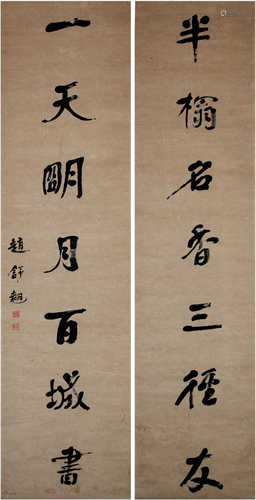 半榻名香三徑友
一天明月百城書
趙舒翹